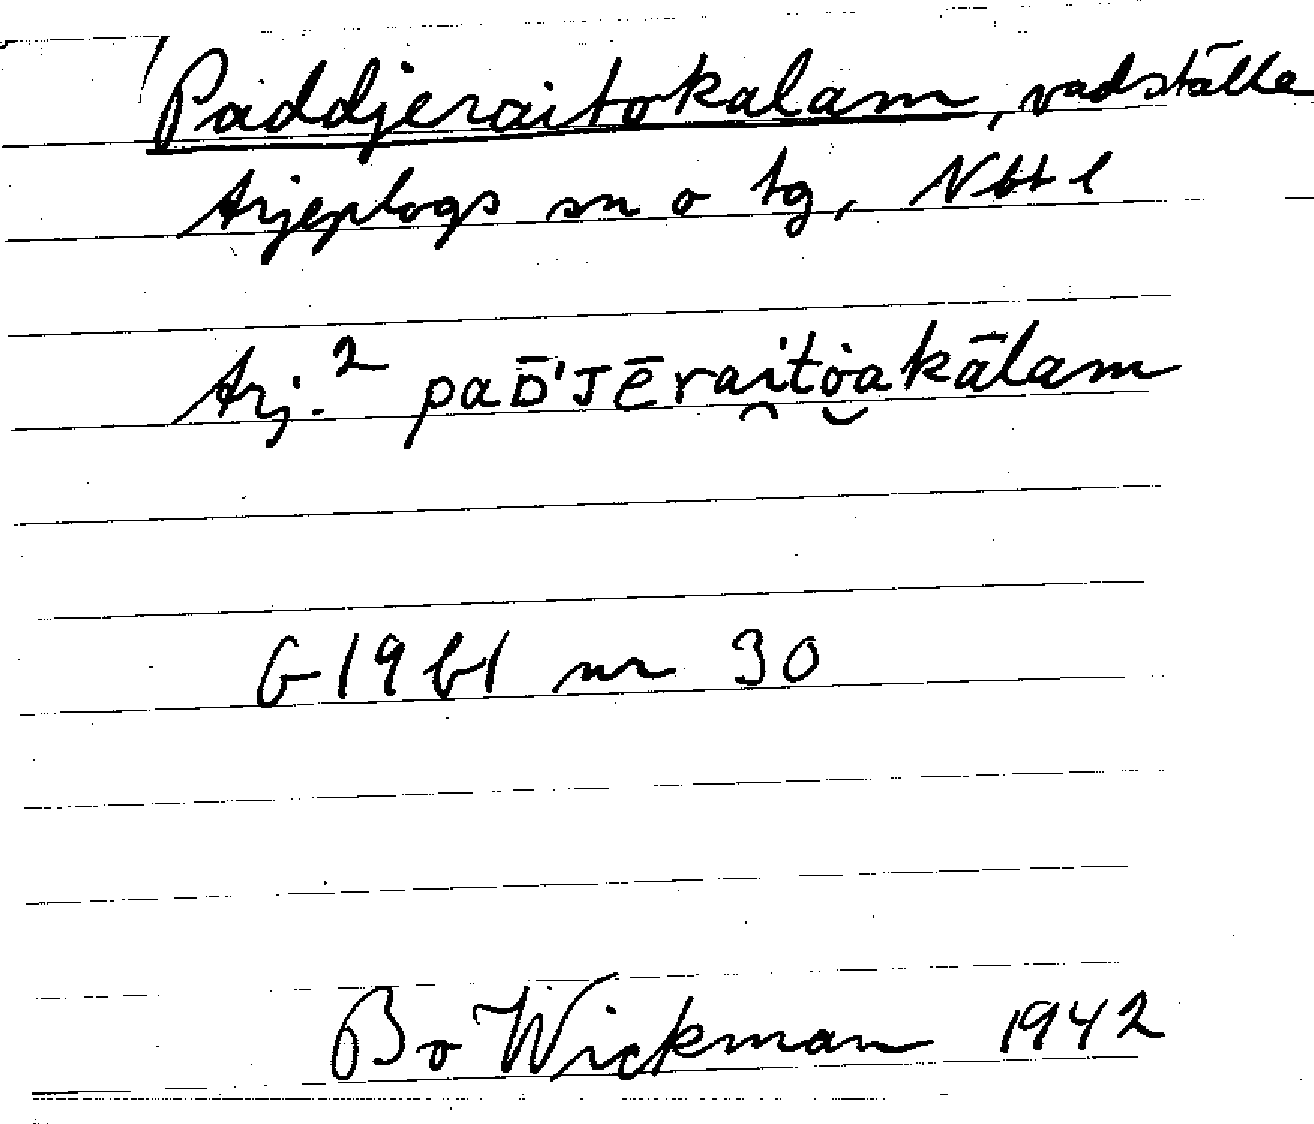 Paddjeraitokalam, vadställe
Arjeplogs sn o tg, Nbt l
Arj.² paD̄'Jēra͡itȯ̮akālam
G 19 bl nr 30
Bo Wickman 1942